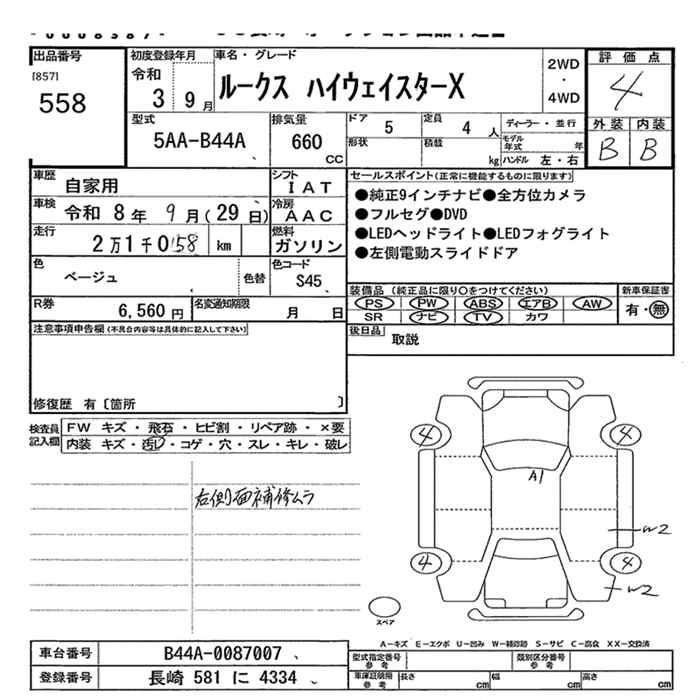 出品番号
[857]
558
初度登録年月
令和
3 9月
車名・グレード
ルークス ハイウェイスターX
2WD
・
4WD
評価点
4
外装 内装
B B
型式
5AA-B44A
排気量
660
CC
ドア
5
定員
4 人
ディーラー・並行
形状
積載
kg
モデル年式
年
ハンドル 左・右
車歴
自家用
シフト
IAT
車検
令和 8年 9月(29日)
冷房
AAC
走行
2万1千0158 km
燃料
ガソリン
色
ベージュ
色替
色コード
S45
R券
6,560円
名変通知期限
月 日
セールスポイント(正常に機能するものに限ります)
●純正9インチナビ●全方位カメラ
●フルセグ●DVD
●LEDヘッドライト●LEDフォグライト
●左側電動スライドドア
装備品 (純正品に限り○をつけてください)
PS PW ABS エアB AW
SR ナビ TV カワ
新車保証書
有・無
後日品
取説
注意事項申告欄(不具合内容等は具体的に記入して下さい)
修復歴 有〔箇所 〕
検査員
記入欄
FW キズ・飛石・ヒビ割・リペア跡・×要
内装 キズ・汚レ・コゲ・穴・スレ・キレ・破レ
右側面補修ムラ
4 4
A1
W2
4 4
W2
スペア
A-キズ E-エクボ U-凹み W-補修跡 S-サビ C-腐食 XX-交換済
車台番号
B44A-0087007
登録番号
長崎 581 に 4334
型式指定番号
参考
類別区分番号
参考
車庫証明用
参考
長さ cm
幅 cm
高さ cm